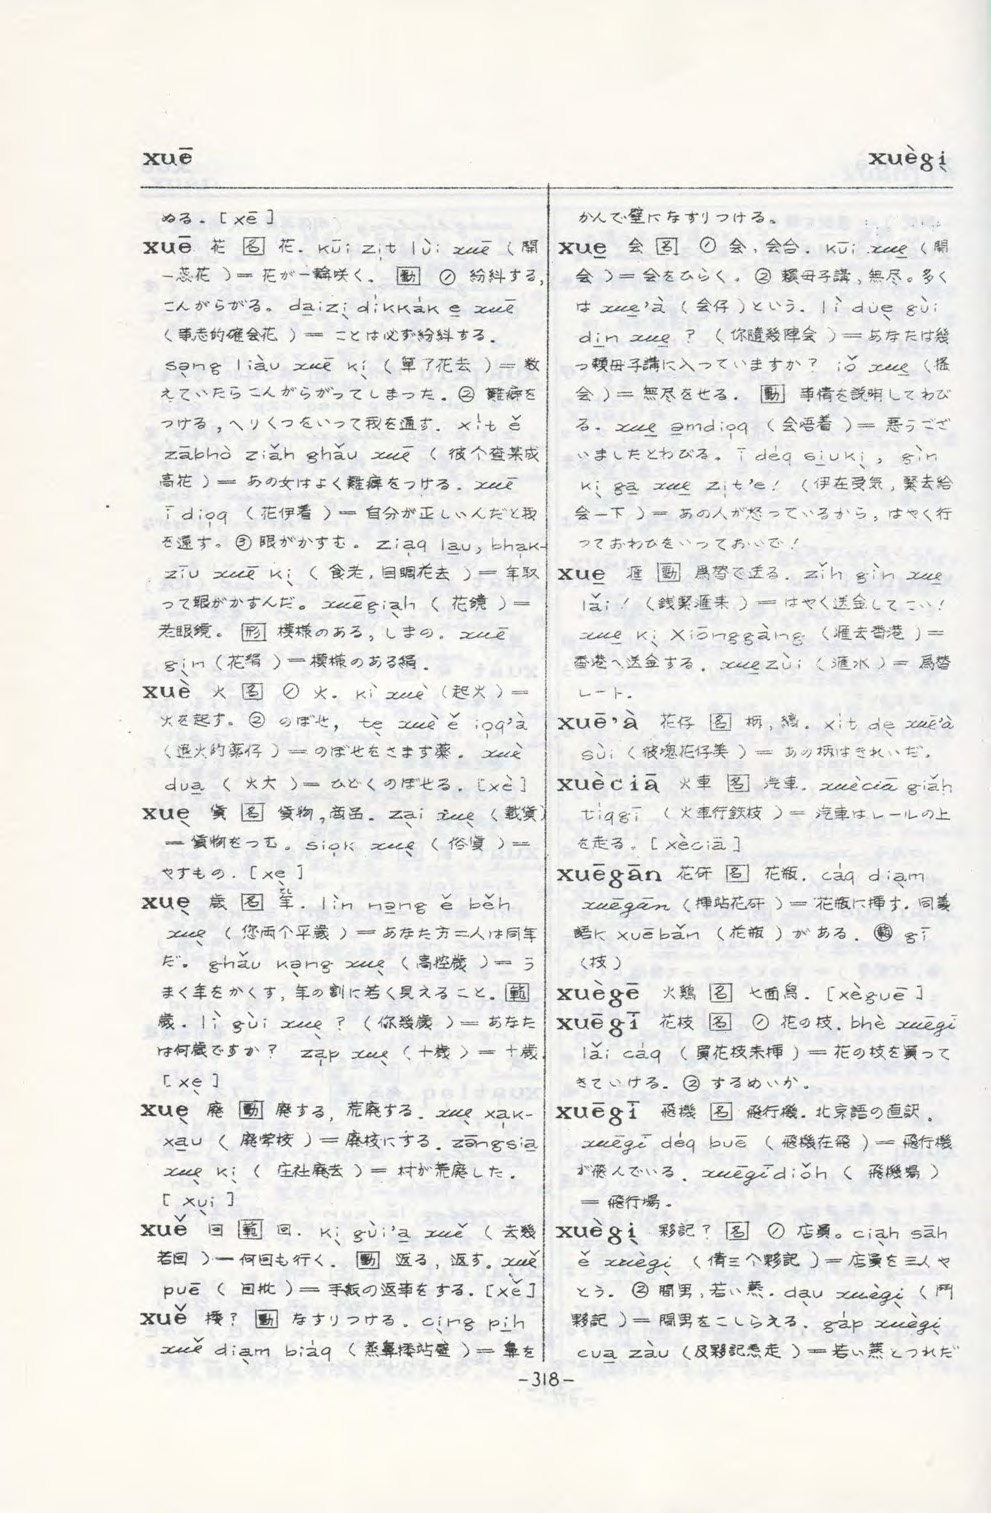 xuē
xuègi̖
ぬる. [xē]
xuē 花 名 花. kūi zi̍t lùi xuē ( 開
一蕊花 )= 花が一輪咲く. 動 ① 紛糾する,
こんがらがる。 da̱izi̖ di̍kka̍k e̱ xuē
( 事志的確会花 ) = ことは必ず紛糾する.
sa̖ng liàu xuē ki̖ ( 算了花去 ) = 数
えていたらこんがらがってしまった. ② 難癖を
つける, へりくつをいって我を通す. xi̍t ě
zābhò ziǎh ghǎu xuē ( 彼个查某成
高花 )= あの女はよく難癖をつける. xuē
ī diọq ( 花伊着 )= 自分が正しいんだと我
を通す。 ③ 眼がかすむ。 zia̍q la̱u, bha̍k-
zīu xuē ki̖ ( 食老, 目睭花去 )= 年取
って眼がかすんだ。 xuēgia̖h ( 花鏡 )=
老眼鏡。 形 模様のある, しまの. xuē
gi̖n (花絹 )=模様のある絹.
xuè 火 名 ① 火. kì xuè (起火 )=
火を起す。 ② のぼせ, te̖ xuè ě ioq'à
(退火的薬仔 )= のぼせをさます薬. xuè
dua̱ ( 火大 )= ひどくのぼせる. [xè]
xue̖ 貨 名 貨物, 商品. za̖i xue̖ ( 載貨)
= 貨物をつむ。 sio̍k xue̖ ( 俗貨 )=
やすもの. [xe̖ ]
xue̖ 歳 名 年. lìn nn̄g ě běh
xue̖ ( 您両个平歳 )= あなた方二人は同年
だ. ghǎu ka̖ng xue̖ ( 高控歳 )= う
まく年をかくす, 年の割に若く見えること. 範
歳. lì gùi xue̖ ? ( 你幾歳 )= あなた
は何歳ですか? za̍p xue̖ ( 十歳 ) = 十歳.
[ xe̖ ]
xue̖ 廃 動 廃する, 荒廃する. xue̖ xa̍k-
xa̱u ( 廃学校 )= 廃校にする. zāngsia̱
xue̖ ki̖ ( 庄社廃去 )= 村が荒廃した.
[ xu̖i ]
xuě 回 範 回. ki̖ gùi'a̱ xuě ( 去幾
若回 )= 何回も行く. 動 返る, 返す. xuě
puē ( 回批 )= 手紙の返事をする. [xě]
xuě 動 なすりつける. cìng pi̱h
xuě dia̱m biáq )= 鼻を
かんで壁になすりつける。
xue̱ 会 名 ① 会, 会合. kūi xue̱ ( 開
会 )= 会をひらく. ② 頼母子講, 無尽。多く
は xue̱'à ( 会仔 )という. lì dùe̱ gùi
di̱n xue̱ ? ( 你隨幾陣会 )=あなたは幾
つ頼母子講に入っていますか? iǒ xue̱ (搖
会 )= 無尽をせる. 動 事情を説明してわび
る. xue̱ a̱mdioq ( 会唔着 )= 悪うござ
いましたとわびる。 ī déq siu̱ki̖ , gìn
ki̖ ga̱ xue̱ zi̍t'e! ( 伊在受気, 緊去給
会一下 )= あの人が怒っているから, はやく行
っておわびをいっておいで!
xue̱ 滙 動 為替で送る. zǐh gìn xue̱
lǎi! ( 銭緊滙来 )= はやく送金してこい!
xue̱ ki̖ Xiōnggàng ( 滙去香港 )=
香港へ送金する. xue̱zùi ( 滙水 )= 為替
レート.
xuē'à 花仔 名 柄, 縞. xi̍t de̖ xuē'à
sùi ( 彼塊花仔美 )= あの柄はきれいだ.
xuèciā 火車 名 汽車. xuèciā giǎh
tiqgī ( 火車行鉄枝 )= 汽車はレールの上
を走る. [ xèciā ]
xuēgān 花矸 名 花瓶. cáq dia̱m
xuēgān ( 挿站花矸 )= 花瓶に挿す. 同義
語に xuēbǎn ( 花瓶 ) がある. gī
(枝 )
xuègē 火鶏 名 七面鳥. [xèguē ]
xuēgī 花枝 名 ① 花の枝. bhè xuēgī
lǎi cáq ( 買花枝来挿 )= 花の枝を買って
きていける. ② するめいか.
xuēgī 飛機 名 飛行機. 北京語の直訳.
xuēgī déq buē ( 飛機在飛 )= 飛行機
が飛んでいる. xuēgīdiǒh ( 飛機場 )
= 飛行場.
xuègi̖ 夥記? 名 ① 店員。 cia̖h sāh
ě xuègi̖ ( 倩三个夥記 )= 店員を三人や
とう. ② 間男, 若い燕. da̖u xuègi̖ ( 鬥
夥記 )= 間男をこしらえる. gáp xuègi̖
cua̱ zàu ( 及夥記𤆬走 )= 若い燕とつれだ
-318-